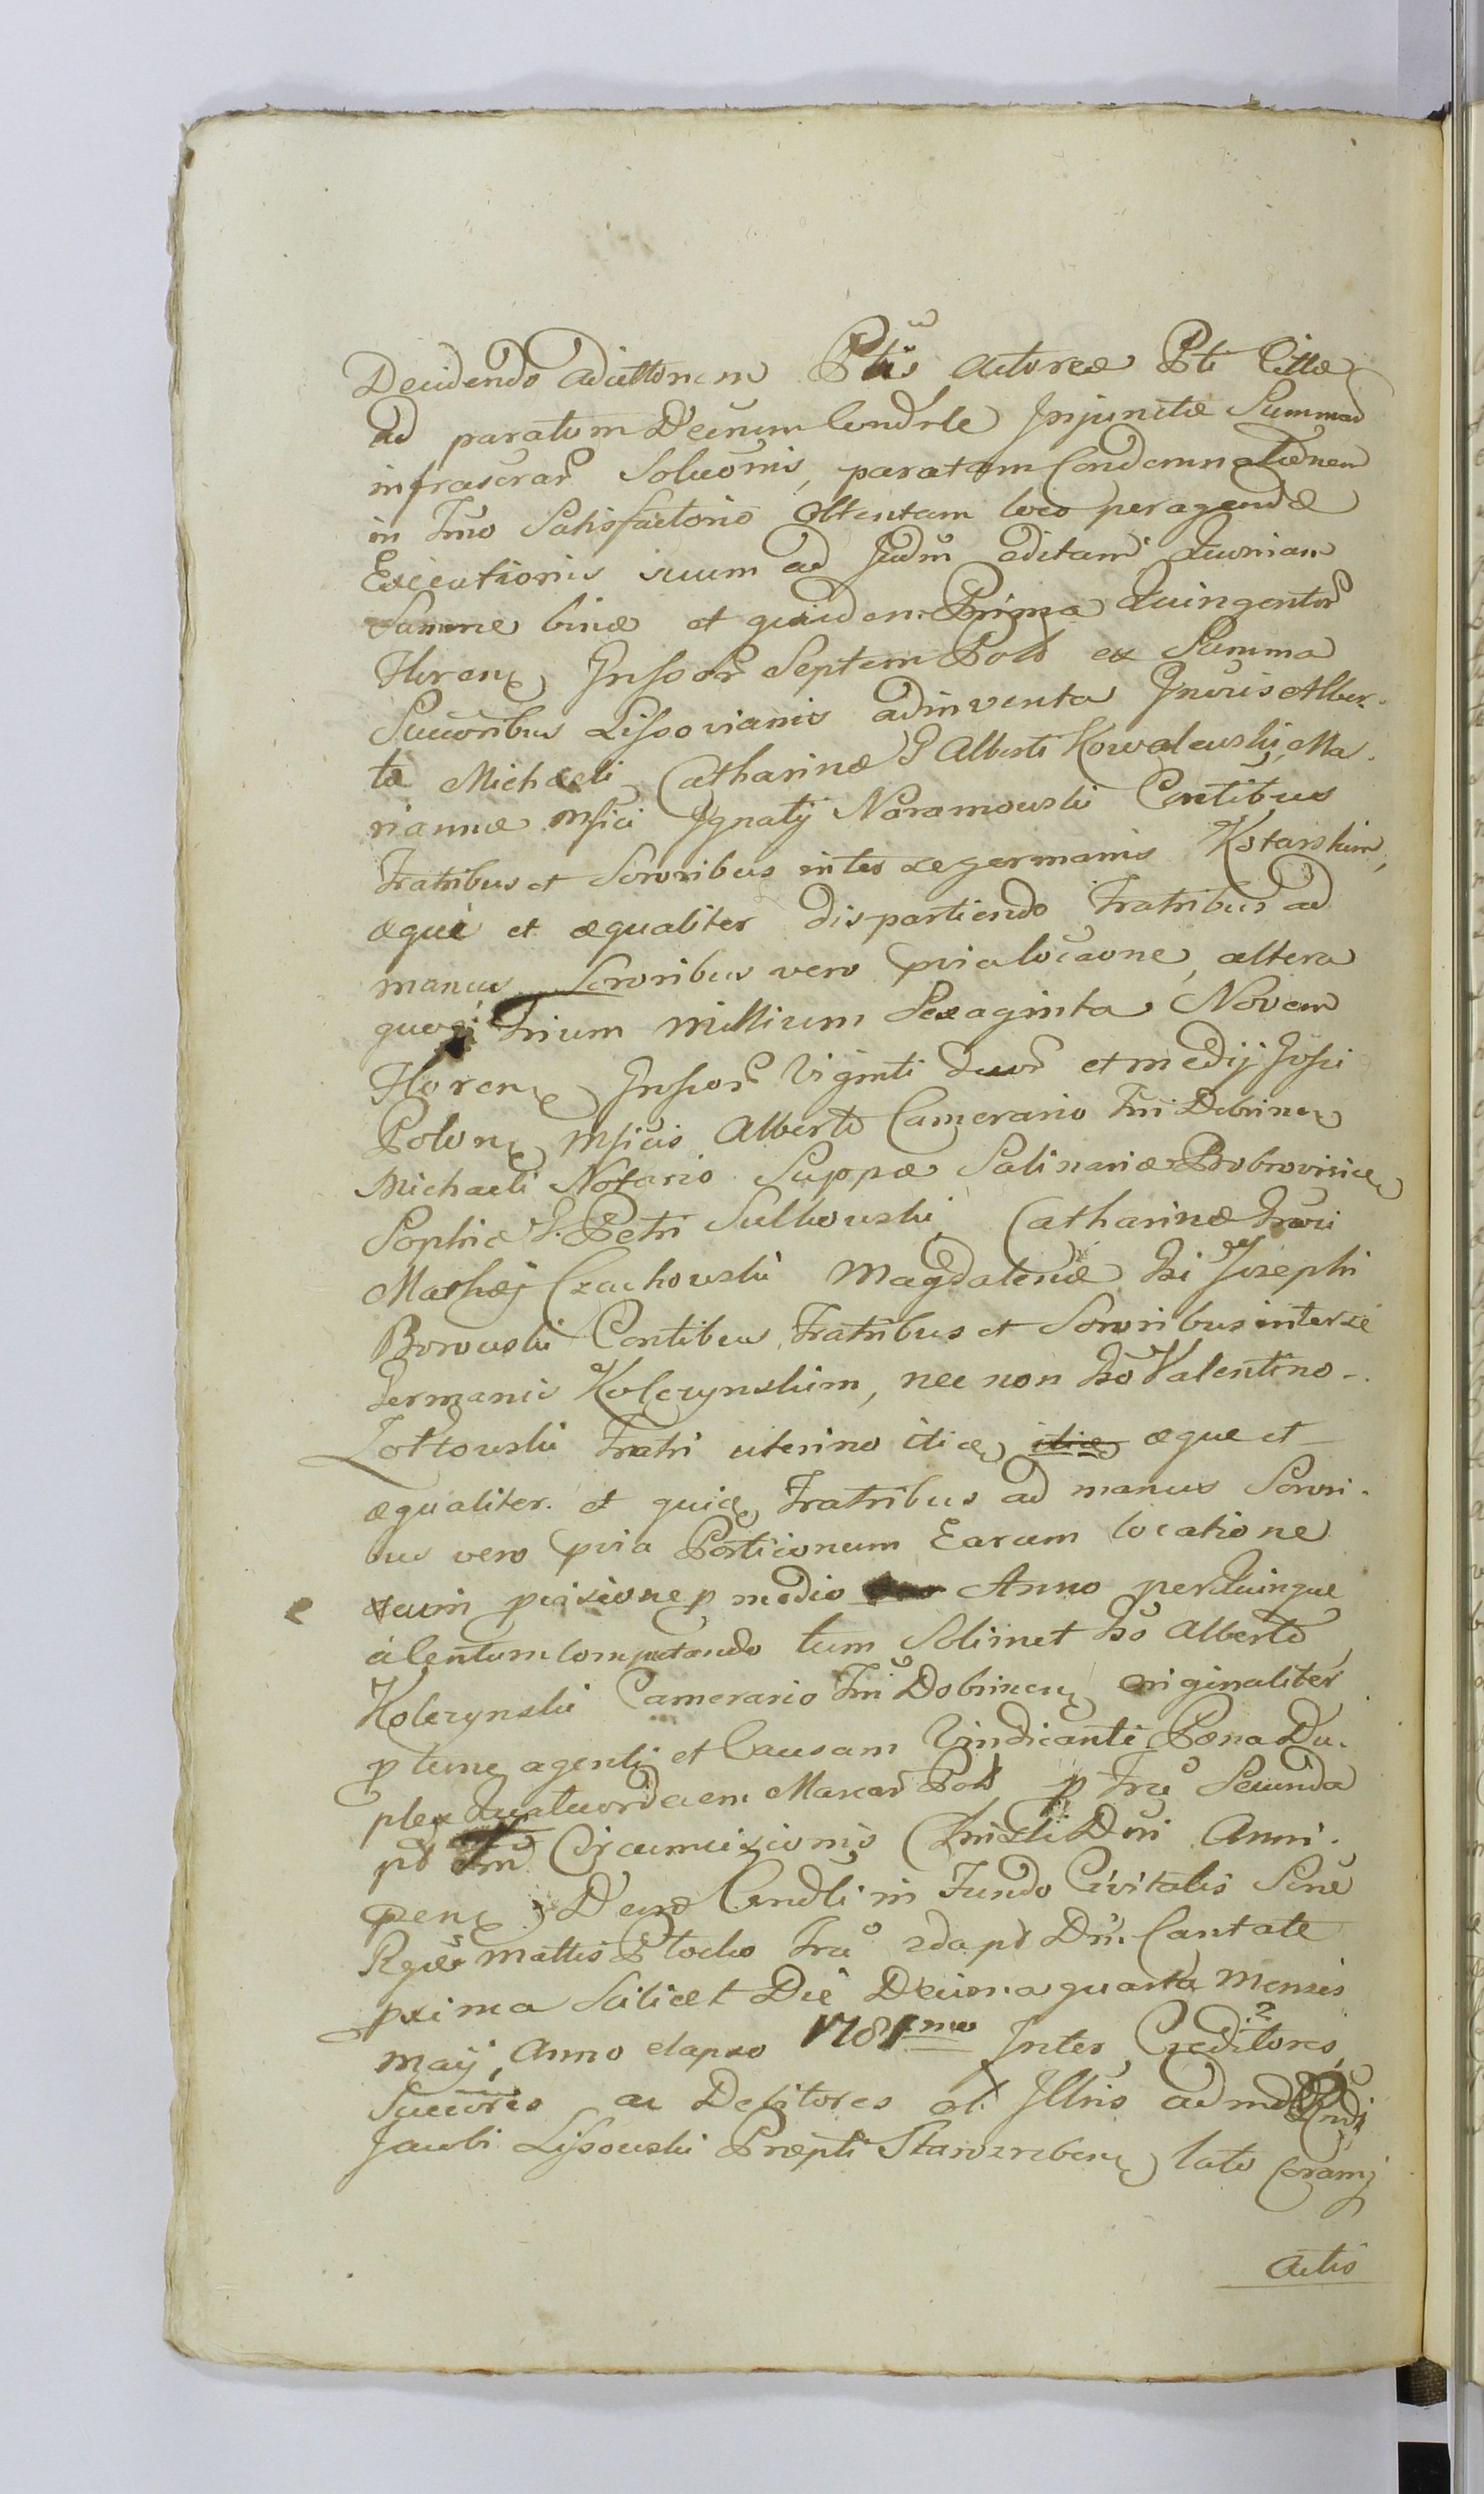 Decidendo ad actionem Ptis Actoreæ Pti Cittæ
ad paratum Decnum Condrle Injunctæ Summar
infrascrar Soluonis, paratam Condemnatonem
in Tmo Satisfactorio Obtentam loco peragendæ
Executionis suum ad Judm editam. Quoniam
Summæ binæ et quidem Prima Quingentor
Floren, Grossor Septem Pold ex Summa
Succoribus Lissovianis adinventa Gneris Alber-
to Michaeli, Catharinæ G Alberti Kowalewski, Ma-
riannæ Mfici Ignatij Naramowski Contibus
Fratribus et Sororibus inter se germanis Kotarskim,
æque et æqualiter dispartiendo Fratribus ad
manus Sororibus vero pvia locaone, altera
quoq Trium Millium Sexaginta Novem
Floren, Grossor Viginti duor et medij Grossi
Polon, Mficis Alberto Camerario Tri Dobrinen
Michaeli Notario Suppæ Salinariæ Bobrovnicen
Sophiæ G. Petri Sulkowski, Catharinæ Grosi
Mathæj Czachowski Magdalenæ Gsi Josephi
Borowski Contibus, Fratribus et Sororibus inter se
Germanis Kolczynskim, nec non Gso Valentino
Zołtowski Fratri uterino itidæ itidæ æque et
æqualiter. et quidæ Fratribus ad manus Sorori-
bus vero pvia Portionum Earum locatione
cum pvisione p medio Anno per Quinque
a Centum Computando tum Soli met Gso Alberto
Kolczynski Camerario Tri Dobrinen originaliter
p tunc agenti et Causam Vindicanti Pæna Du-
plex Quatuordecem Marcar Pold p Fra Secunda
pt Fm Circumcisionis Christi Dni Anni
pen, Decro Condli in Fundo Civitatis Sræ
Rgiæ Mattis Plocko Fra 2da pt Dn. Cantate
pxima Scilicet Die Decima quarta Mensis
Maij, Anno elapso 1781mo Inter Creditores
Succores ac Debitores ol. Illris admd Rndi
Jacobi Lissowski Præpti Starozreben, lato Coram
Actis